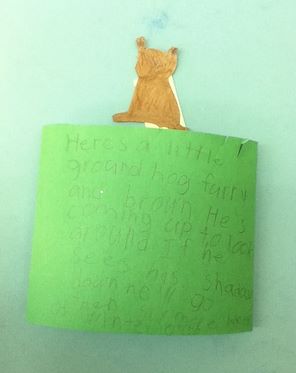 Here's a little
ground hog furry
and brown He's
coming up to look
around If he
sees his shadow
down he'll go
Then six more weeks
of winter